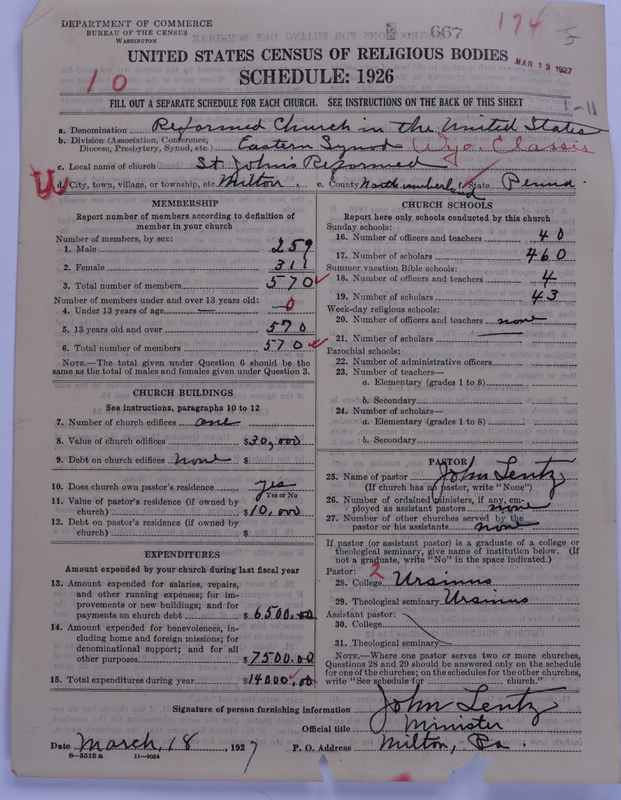 DEPARTMENT OF COMMERCE
BUREAU OF THE CENSUS
WASHINGTON
667
174
MAR 19 1927
UNITED STATES CENSUS OF RELIGIOUS BODIES
SCHEDULE: 1926
10
FILL OUT A SEPARATE SCHEDULE FOR EACH CHURCH. SEE INSTRUCTIONS ON THE BACK OF THIS SHEET
1-11
a. Denomination Reformed Church in the United States
b. Division (Association, Conference, Diocese, Presbytery, Synod, etc.) Eastern Synod Wyo. Classis
c. Local name of church St. John's Reformed
d. City, town, village, or township, etc. Milton. e. County Northumberland f. State Penna.
MEMBERSHIP
Report number of members according to definition of member in your church
Number of members, by sex:
1. Male 259
2. Female 311
3. Total number of members 570
Number of members under and over 13 years old:
4. Under 13 years of age 0
5. 13 years old and over 570
6. Total number of members 570
NOTE.—The total given under Question 6 should be the same as the total of males and females given under Question 3.
CHURCH BUILDINGS
See instructions, paragraphs 10 to 12
7. Number of church edifices one
8. Value of church edifices $30,000
9. Debt on church edifices none $
10. Does church own pastor's residence yes
Yes or No
11. Value of pastor's residence (if owned by church) $10,000
12. Debt on pastor's residence (if owned by church) $
EXPENDITURES
Amount expended by your church during last fiscal year
13. Amount expended for salaries, repairs, and other running expenses; for improvements or new buildings; and for payments on church debt $6500.00
14. Amount expended for benevolences, including home and foreign missions; for denominational support; and for all other purposes $7500.00
15. Total expenditures during year $14000.00
CHURCH SCHOOLS
Report here only schools conducted by this church
Sunday schools:
16. Number of officers and teachers 40
17. Number of scholars 460
Summer vacation Bible schools:
18. Number of officers and teachers 4
19. Number of scholars 43
Week-day religious schools:
20. Number of officers and teachers none
21. Number of scholars
Parochial schools:
22. Number of administrative officers
23. Number of teachers—
a. Elementary (grades 1 to 8)
b. Secondary
24. Number of scholars—
a. Elementary (grades 1 to 8)
b. Secondary
PASTOR
25. Name of pastor John Lentz
(If church has no pastor, write "None")
26. Number of ordained ministers, if any, employed as assistant pastors none
27. Number of other churches served by the pastor or his assistants none
If pastor (or assistant pastor) is a graduate of a college or theological seminary, give name of institution below. (If not a graduate, write "No" in the space indicated.)
Pastor: 2
28. College Ursinus
29. Theological seminary Ursinus
Assistant pastor:
30. College
31. Theological seminary
NOTE.—Where one pastor serves two or more churches, Questions 28 and 29 should be answered only on the schedule for one of the churches; on the schedules for the other churches, write "See schedule for church."
Signature of person furnishing information John Lentz
Official title Minister
Date March, 18, 1927 P. O. Address Milton, Pa.
8-5318a 11-9054